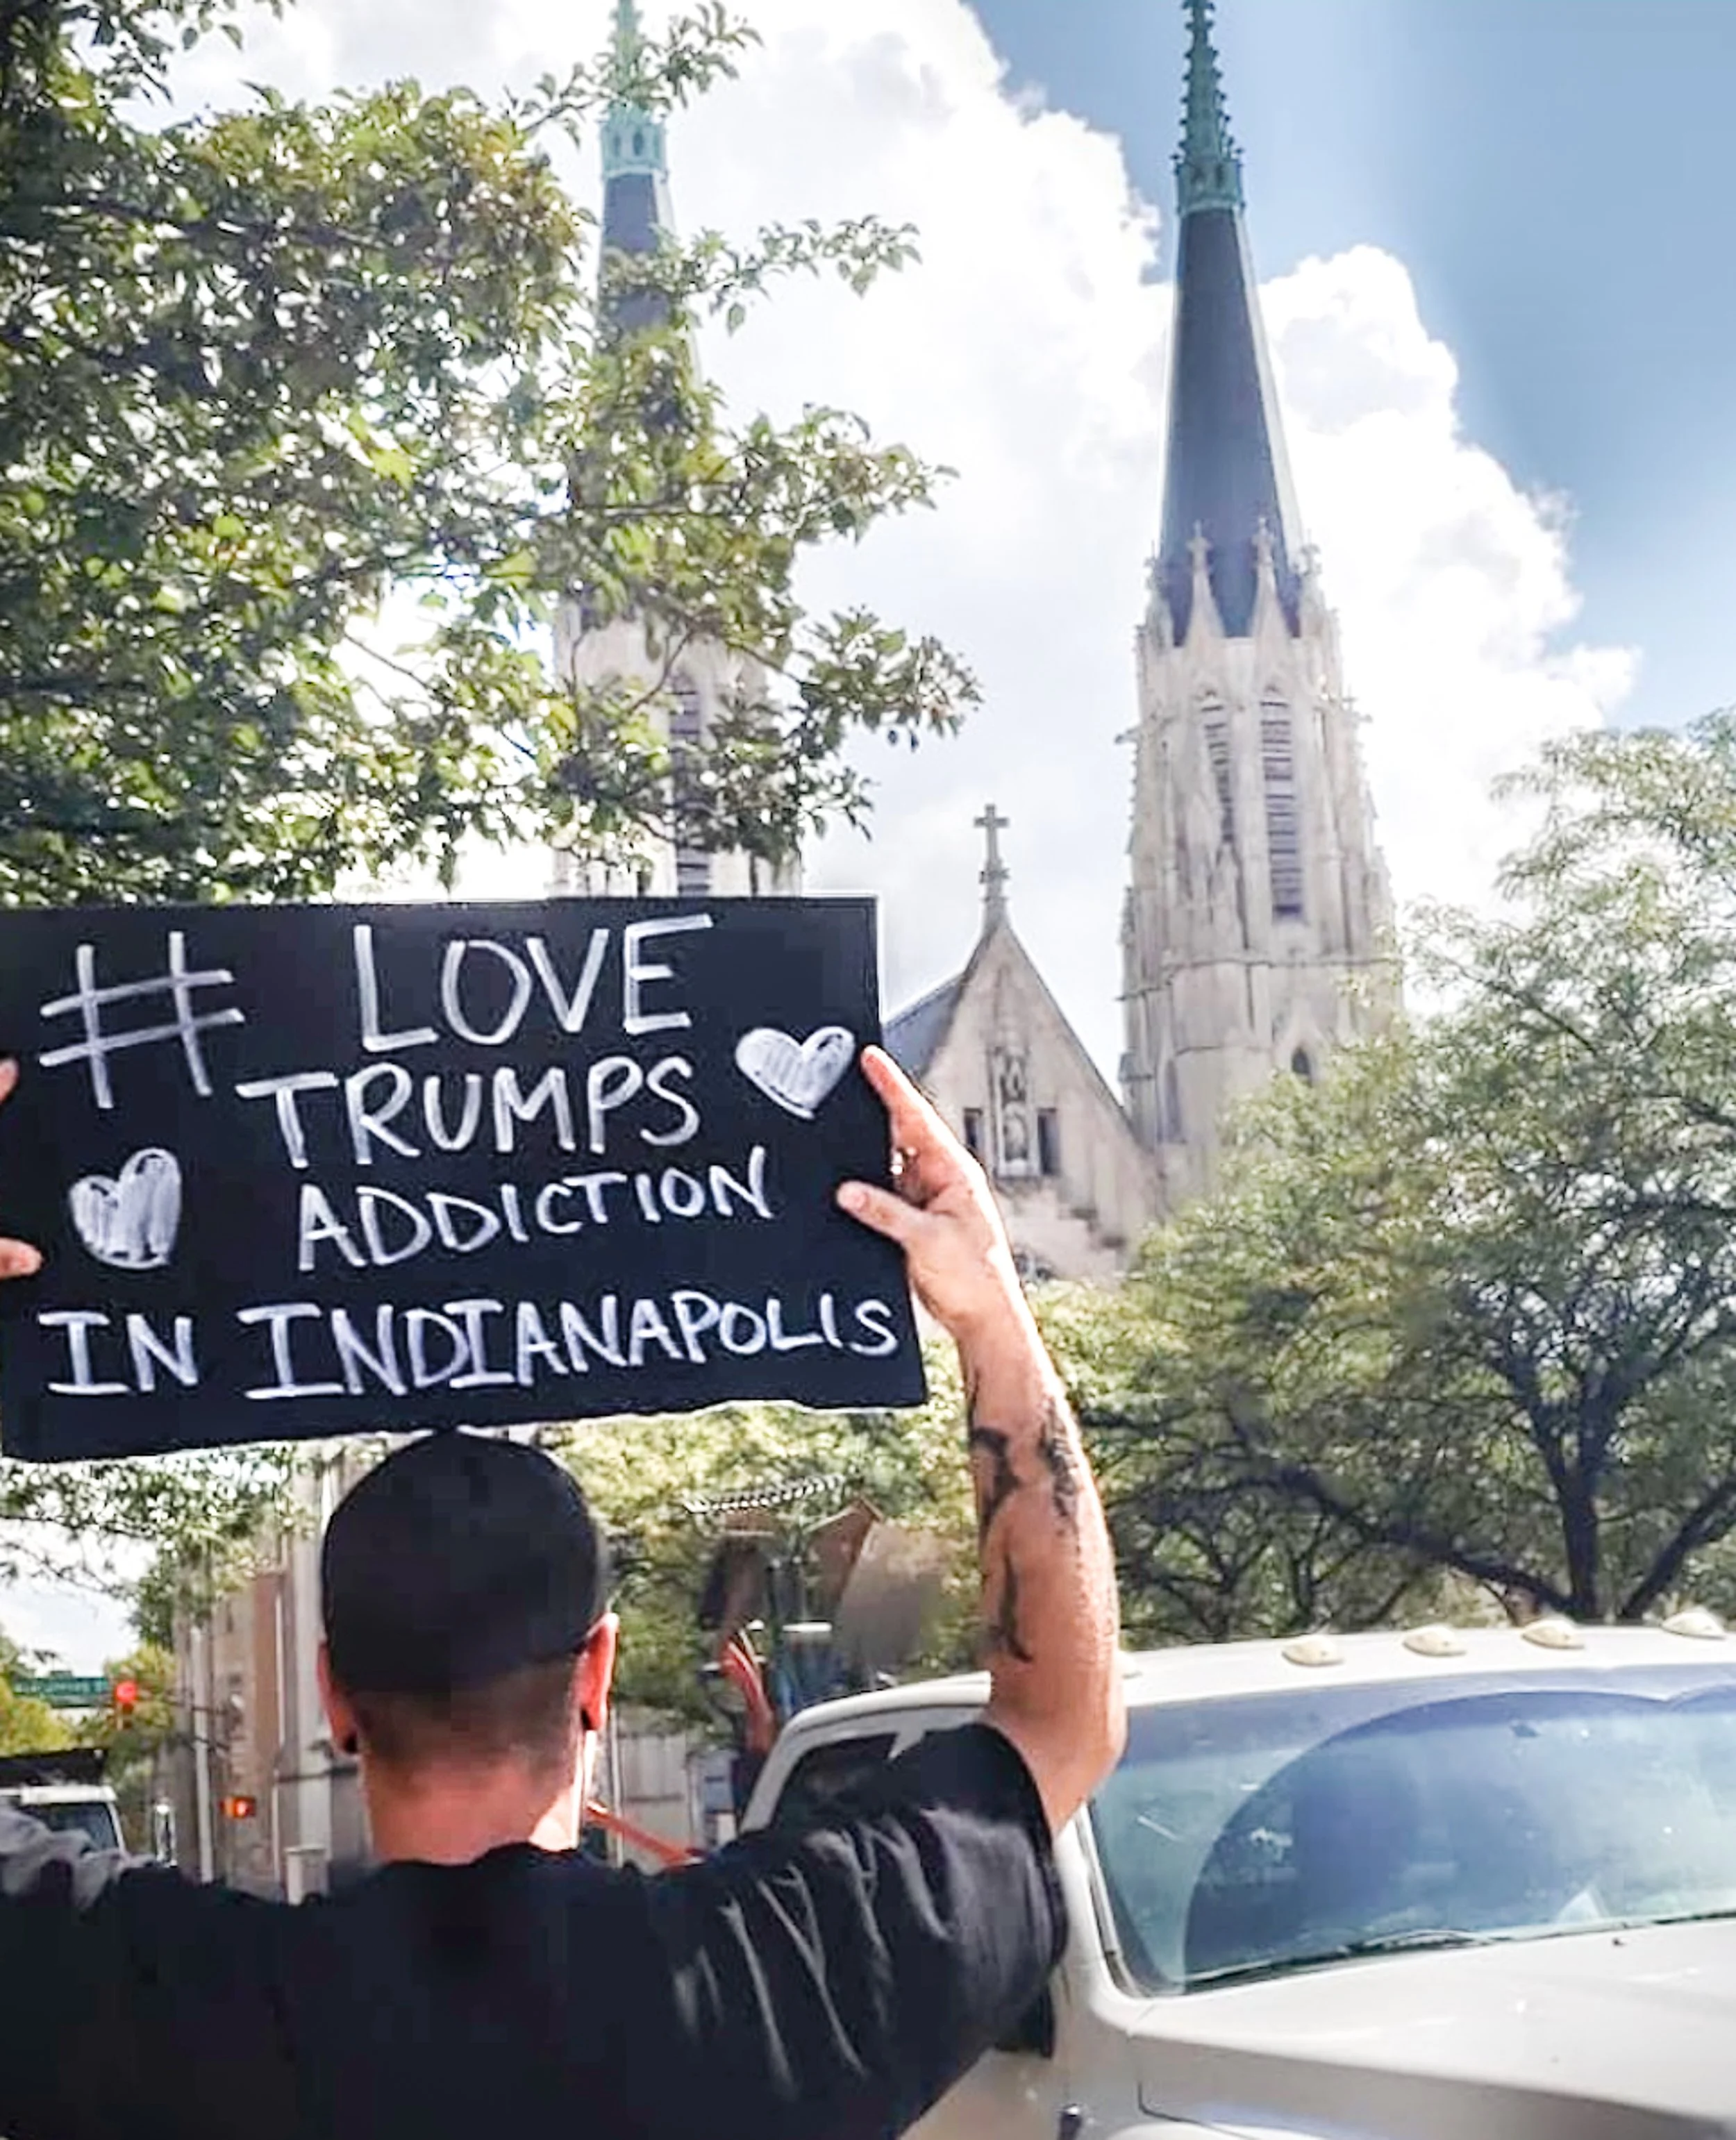 # LOVE
TRUMPS
ADDICTION
IN INDIANAPOLIS